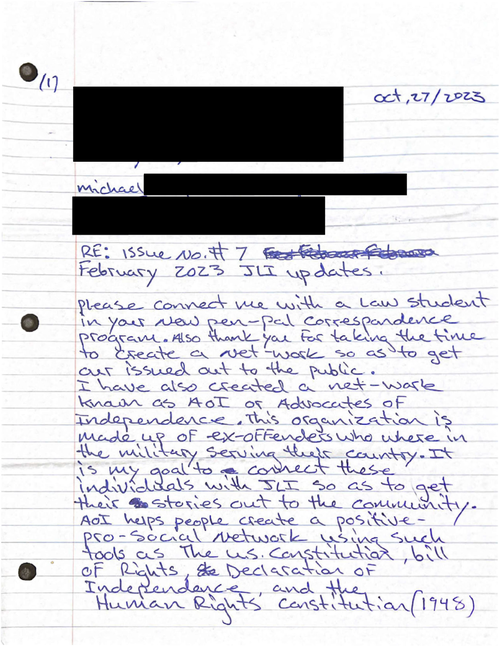 (1)
Oct, 27/2023
michael
RE: issue No. # 7
February 2023 JLI updates.
please connect me with a Law student
in your New pen-pal correspondence
program. Also thank you For taking the time
to create a Net-work so as to get
our issued out to the public.
I have also created a net-work
known as AoI or Advocates of
Independence. This organization is
made up of ex-offenders who where in
the military serving their country. It
is my goal to connect these
individuals with JLI so as to get
their stories out to the community.
AoI helps people create a positive-
pro-social Network using such
tools as The us. Constitution, bill
of Rights, Declaration of
Independence, and the
Human Rights Constitution (1948)